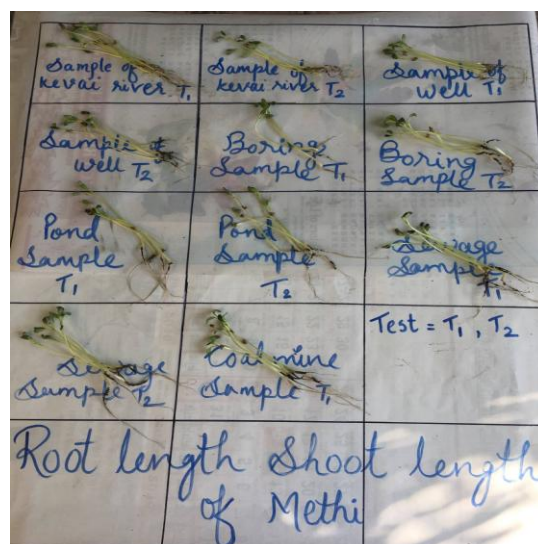 Sample of
kevai river T1
Sample of
kevai river T2
Sample of
well T1
Sample of
well T2
Boring
Sample T1
Boring
Sample T2
Pond
Sample
T1
Pond
Sample
T2
Sewage
Sample
T1
Sewage
Sample T2
Coalmine
Sample T1
Test = T1, T2
Root length Shoot length
of Methi